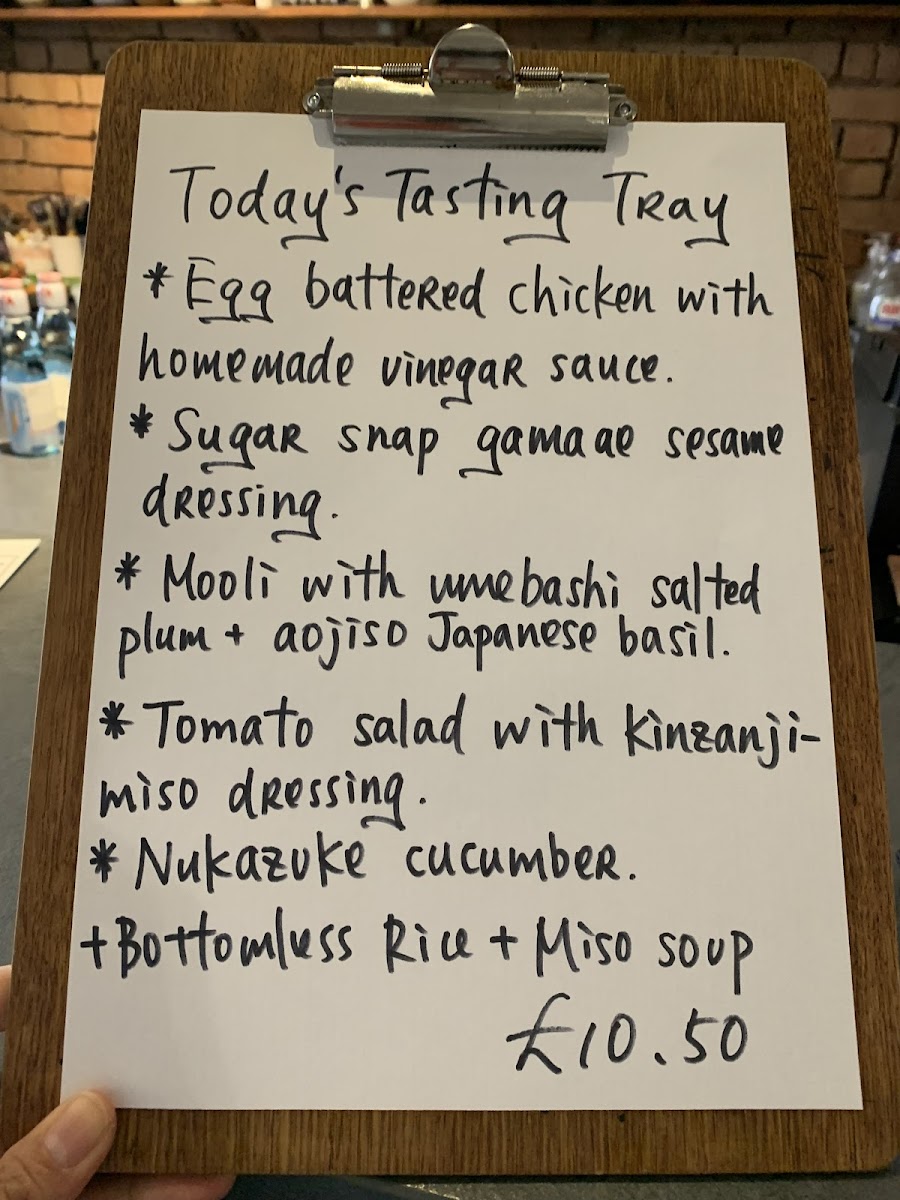 Today's Tasting Tray
* Egg battered chicken with
homemade vinegar sauce.
* Sugar snap gamaae sesame
dressing.
* Mooli with umebashi salted
plum + aojiso Japanese basil.
* Tomato salad with Kinzanji-
miso dressing.
* Nukazuke cucumber.
+ Bottomless Rice + Miso soup
£10.50